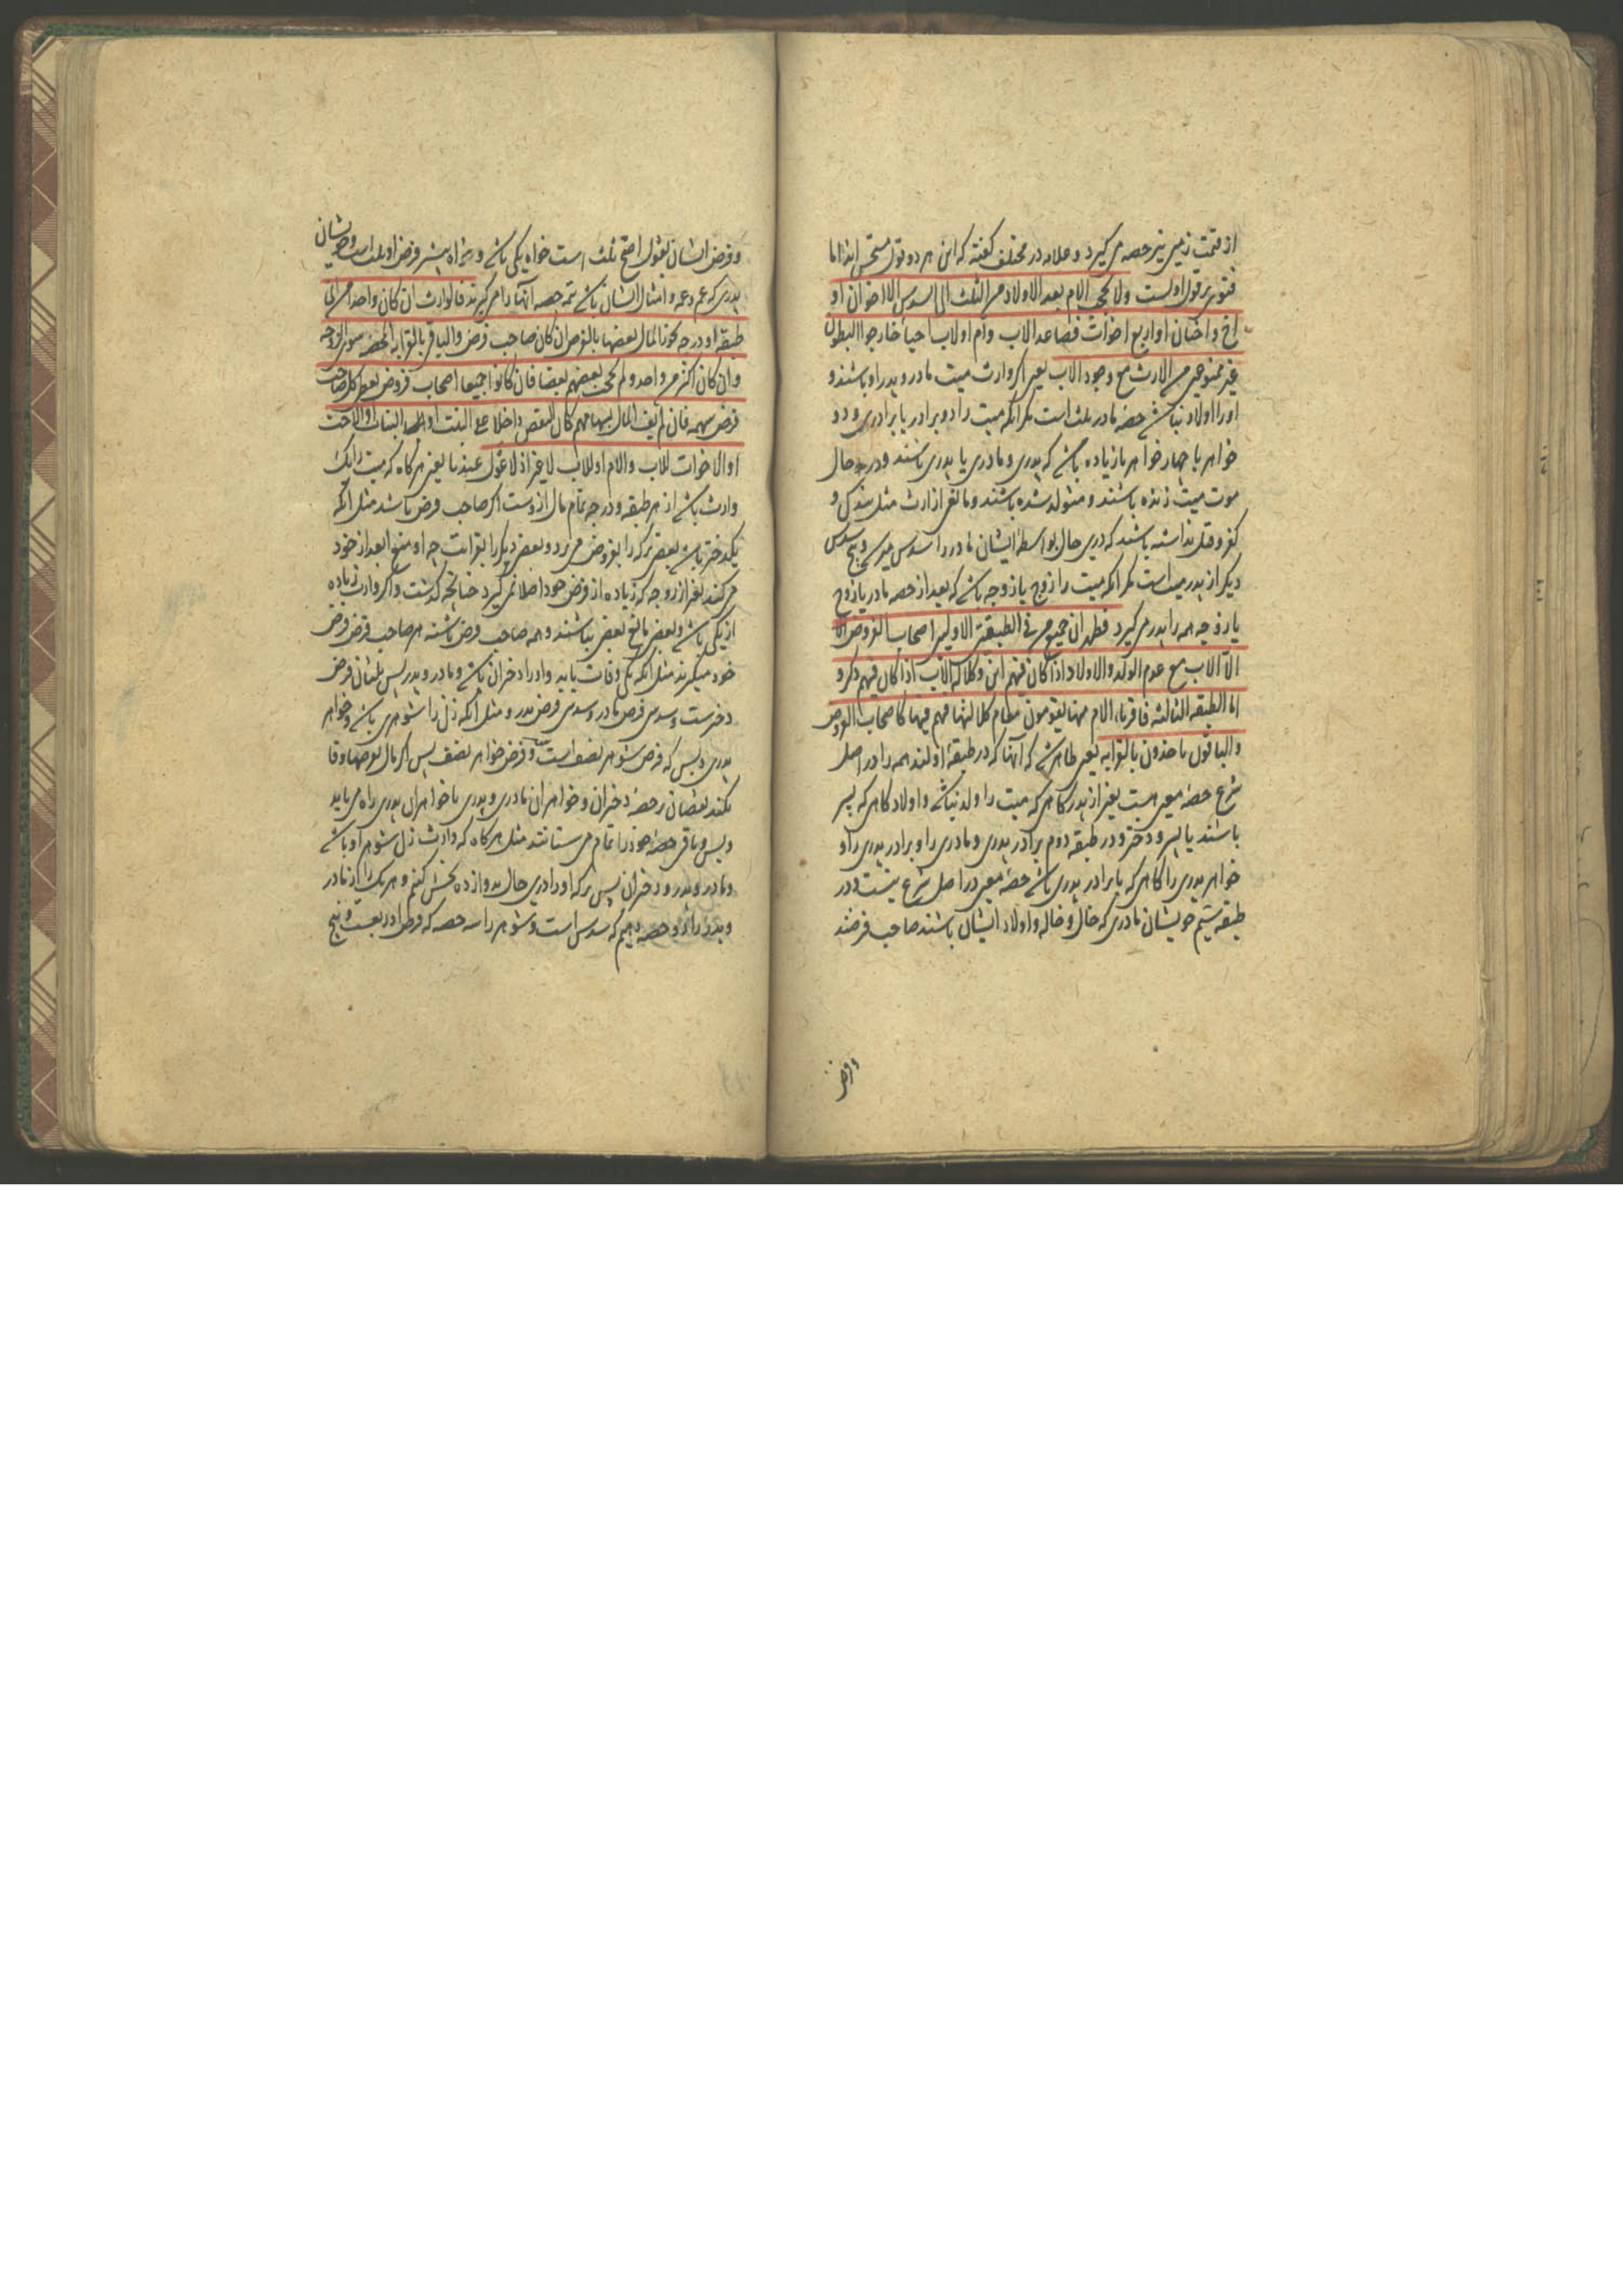 از قیمت زمین نیز حصه می‌گیرد و علامه در مختلف گفته که این هر دو قول مستحسن اند اما
فتوی بر قول اولست ولا یحجب الام بعد الاولاد من الثلث الی السدس الا اخوان او
اخ واختان او اربع اخوات فصاعدا لاب وام او لاب احیاء خارجوا البطون
غیر ممنوعین من الارث مع وجود الاب یعنی اگر وارث میت مادر و پدر او باشند و
او را اولاد نباشد حصه مادر ثلث است مگر آنکه میت را دو برادر یا برادری و دو
خواهر یا چهار خواهر یا زیاده باشد که پدری و مادری یا پدری باشند و در حال
موت میت زنده باشند و متولد شده باشند و مانعی از ارث مثل بندگی و
کفر و قتل نداشته باشند که درین حال بواسطه ایشان مادر را سدس میرسد و پنج سدس
دیگر از پدر میت است مگر آنکه میت را زوج یا زوجه باشد که بعد از حصه مادر یا زوج
یا زوجه همه را پدر می‌گیرد فظهر ان جمیع من فی الطبقتین الاولیین اصحاب الفروض الا
الاب مع عدم الولد والاولاد اذا کان فیهم ابن وکلالة الاب اذا کان فیهم ذکر و
اما الطبقه الثالثه فاقرباء الام منها یقومون مقام کلالتها فهم فیها کاصحاب الفروض
والباقون یاخذون بالقرابه یعنی ظاهر شد که آنها که در طبقه اولند همه را در اصل
شرع حصه معین هست بغیر از پدر گاهی که میت را ولد نباشد و اولاد گاهی که پسر
باشند یا پسر و دختر و در طبقه دوم برادر پدری و مادری را و برادر پدری را و
خواهر پدری را گاهی که با برادر پدری باشد حصه معین در اصل شرع نیست و در
طبقه سیم خویشان مادری که خال و خاله و اولاد ایشان باشند صاحب فرضند
وفرض
و فرض ایشان بقول اصح ثلث است خواه یکی باشد و خواه بیشتر و خویشان
پدری که عم و عمه و امثال ایشان باشد تتمه حصه آنها را می‌گیرند فالوارث ان کان واحدا من ای
طبقه او درجه یحوز المال بعضها بالفرض ان کان صاحب فرض والباقی بالقرابه المحضه سوی الزوجه
وان کان اکثر من واحد ولم یحجب بعضهم بعضا فان کانوا جمیعا اصحاب فروض یعطی کل صاحب
فرض سهمه فان لم یف المال بسهامهم کان النقص داخلا علی البنت او البنات او الاخت
او الاخوات للاب والام او للاب لا غیر اذ لا عول عندنا یعنی هرگاه که میت را یک
وارث باشد از هر طبقه و درجه تمام مال از وست اگر صاحب فرض باشد مثل آنکه
یک دختر باشد بعضی ترکه را بفروض می‌برد و بعضی دیگر را بقرابت چه او منع ابعد از خود
می‌کند بغیر از زوجه که زیاده از فرض خود اصلا نمی‌گیرد چنانچه گذشت و اگر وارث زیاده
از یکی باشد و بعضی مانع بعضی نباشند و همه صاحب فرض باشند هر صاحب فرض فرض
خود میگیرند مثل آنکه یکی وفات یابد و او را دختران باشد و مادر و پدر پس ثلثان فرض
دخترست و سدس فرض مادر و سدس فرض پدر و مثل آنکه زن را شوهری باشد و خواهر
پدری و بس که فرض شوهر نصف است و فرض خواهر نصف پس اگر مال بفرضها وفا
نکند نقصان در حصه دختران و خواهران مادری و پدری یا خواهران پدری راه می‌یابد
و بس و باقی حصه خود را تمام می‌ستانند مثل هرگاه که وارث زن شوهر او باشد
و مادر و پدر و دختران پس ترکه او را درین حال بدوازده بخش کنیم و هر یک را از مادر
و پدر را دو حصه دهیم که سدس است و شوهر را سه حصه که فرض او ربعست و پنج